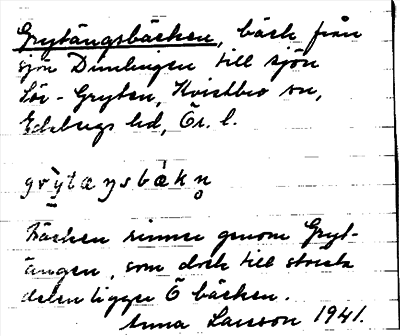 Grytängsbäcken, bäck från
sjön Dunlingen till sjön
Sör-Gryten, Kvistbro sn,
Edsbergs hd, Ör. l.
grỳtæŋsbækn̥
Bäcken rinner genom Gryt-
ängen, som dock till största
delen ligger Ö bäcken.
Anna Larsson 1941.